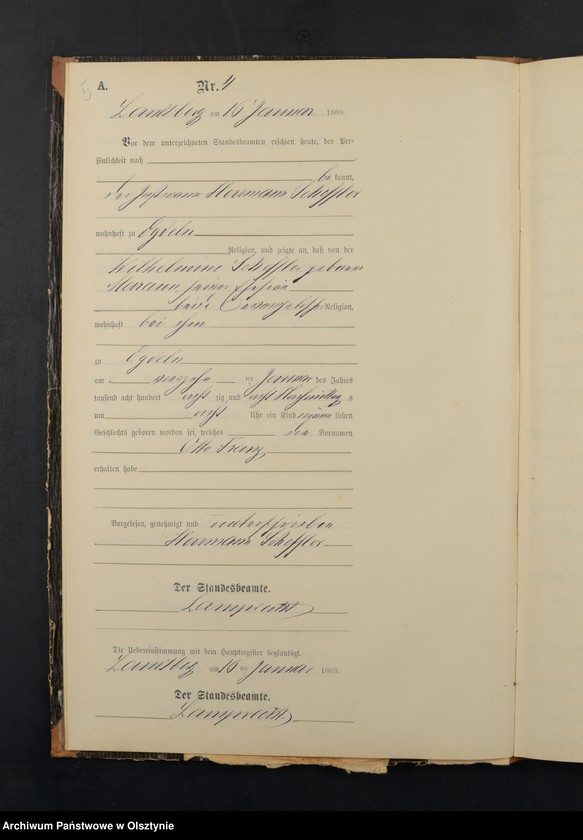 5 A. Nr. 4
Landsberg am 16 Januar 1888.
Vor dem unterzeichneten Standesbeamten erschien heute, der Per-
sönlichkeit nach
be kannt,
der Hermann Scheffler
wohnhaft zu
Religion, und zeigte an, daß von der
Wilhelmine Scheffler geborene
seiner Ehefrau
beide Evangelischer Religion,
wohnhaft bei ihm
zu
am im Januar des Jahres
tausend acht hundert acht zig und acht Nachmittag s
um acht Uhr ein Kind männ lichen
Geschlechts geboren worden sei, welches den Vornamen
Otto Franz
erhalten habe
Vorgelesen, genehmigt und unterschrieben
Hermann Scheffler
Der Standesbeamte.
Lamprecht
Die Uebereinstimmung mit dem Hauptregister beglaubigt.
Landsberg am 16 ten Januar 1888.
Der Standesbeamte.
Lamprecht
Archiwum Państwowe w Olsztynie